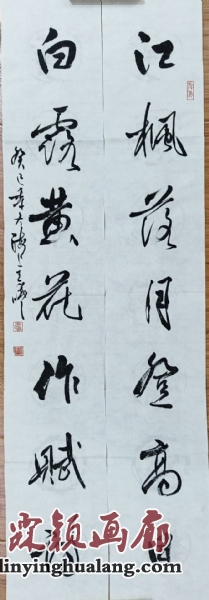 江楓落月登高
白露黄花作賦
癸巳
霖颖画廊
linyinghualang.com